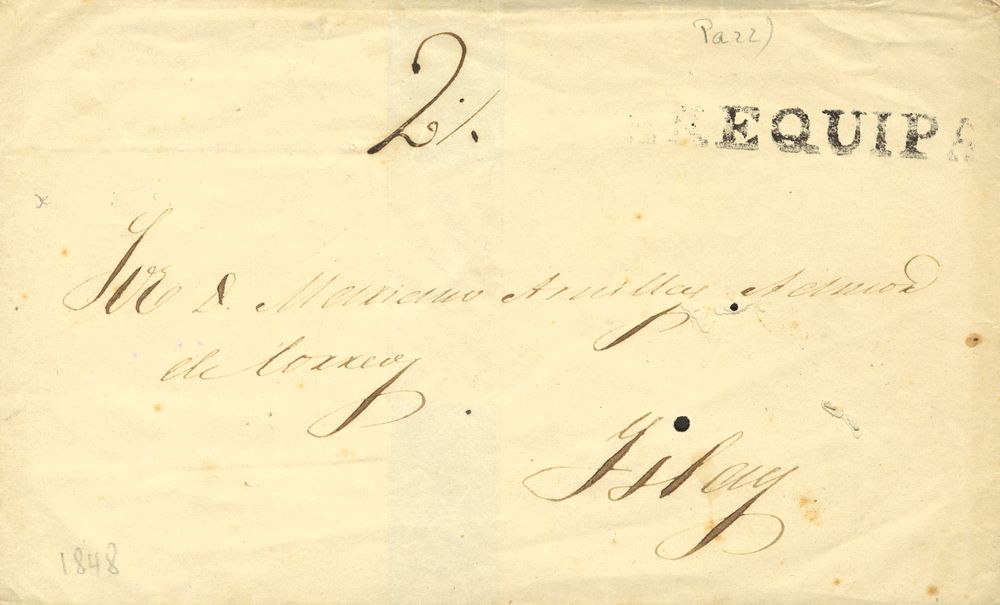 Pazz)
2 1/.
AREQUIPA
Sor D. Mariano Arnillas Admor
de Correos
Yslay
1848